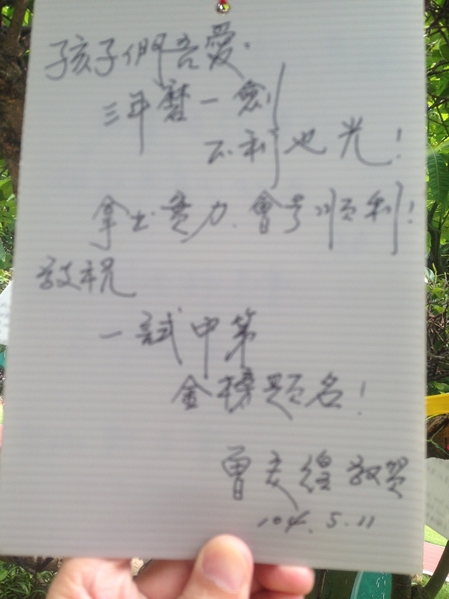 孩子們吾愛:
三年磨一劍
不利也光!
拿出實力.會考順利!
敬祝
一試中第
金榜題名!
曾文 敬賀
104.5.11